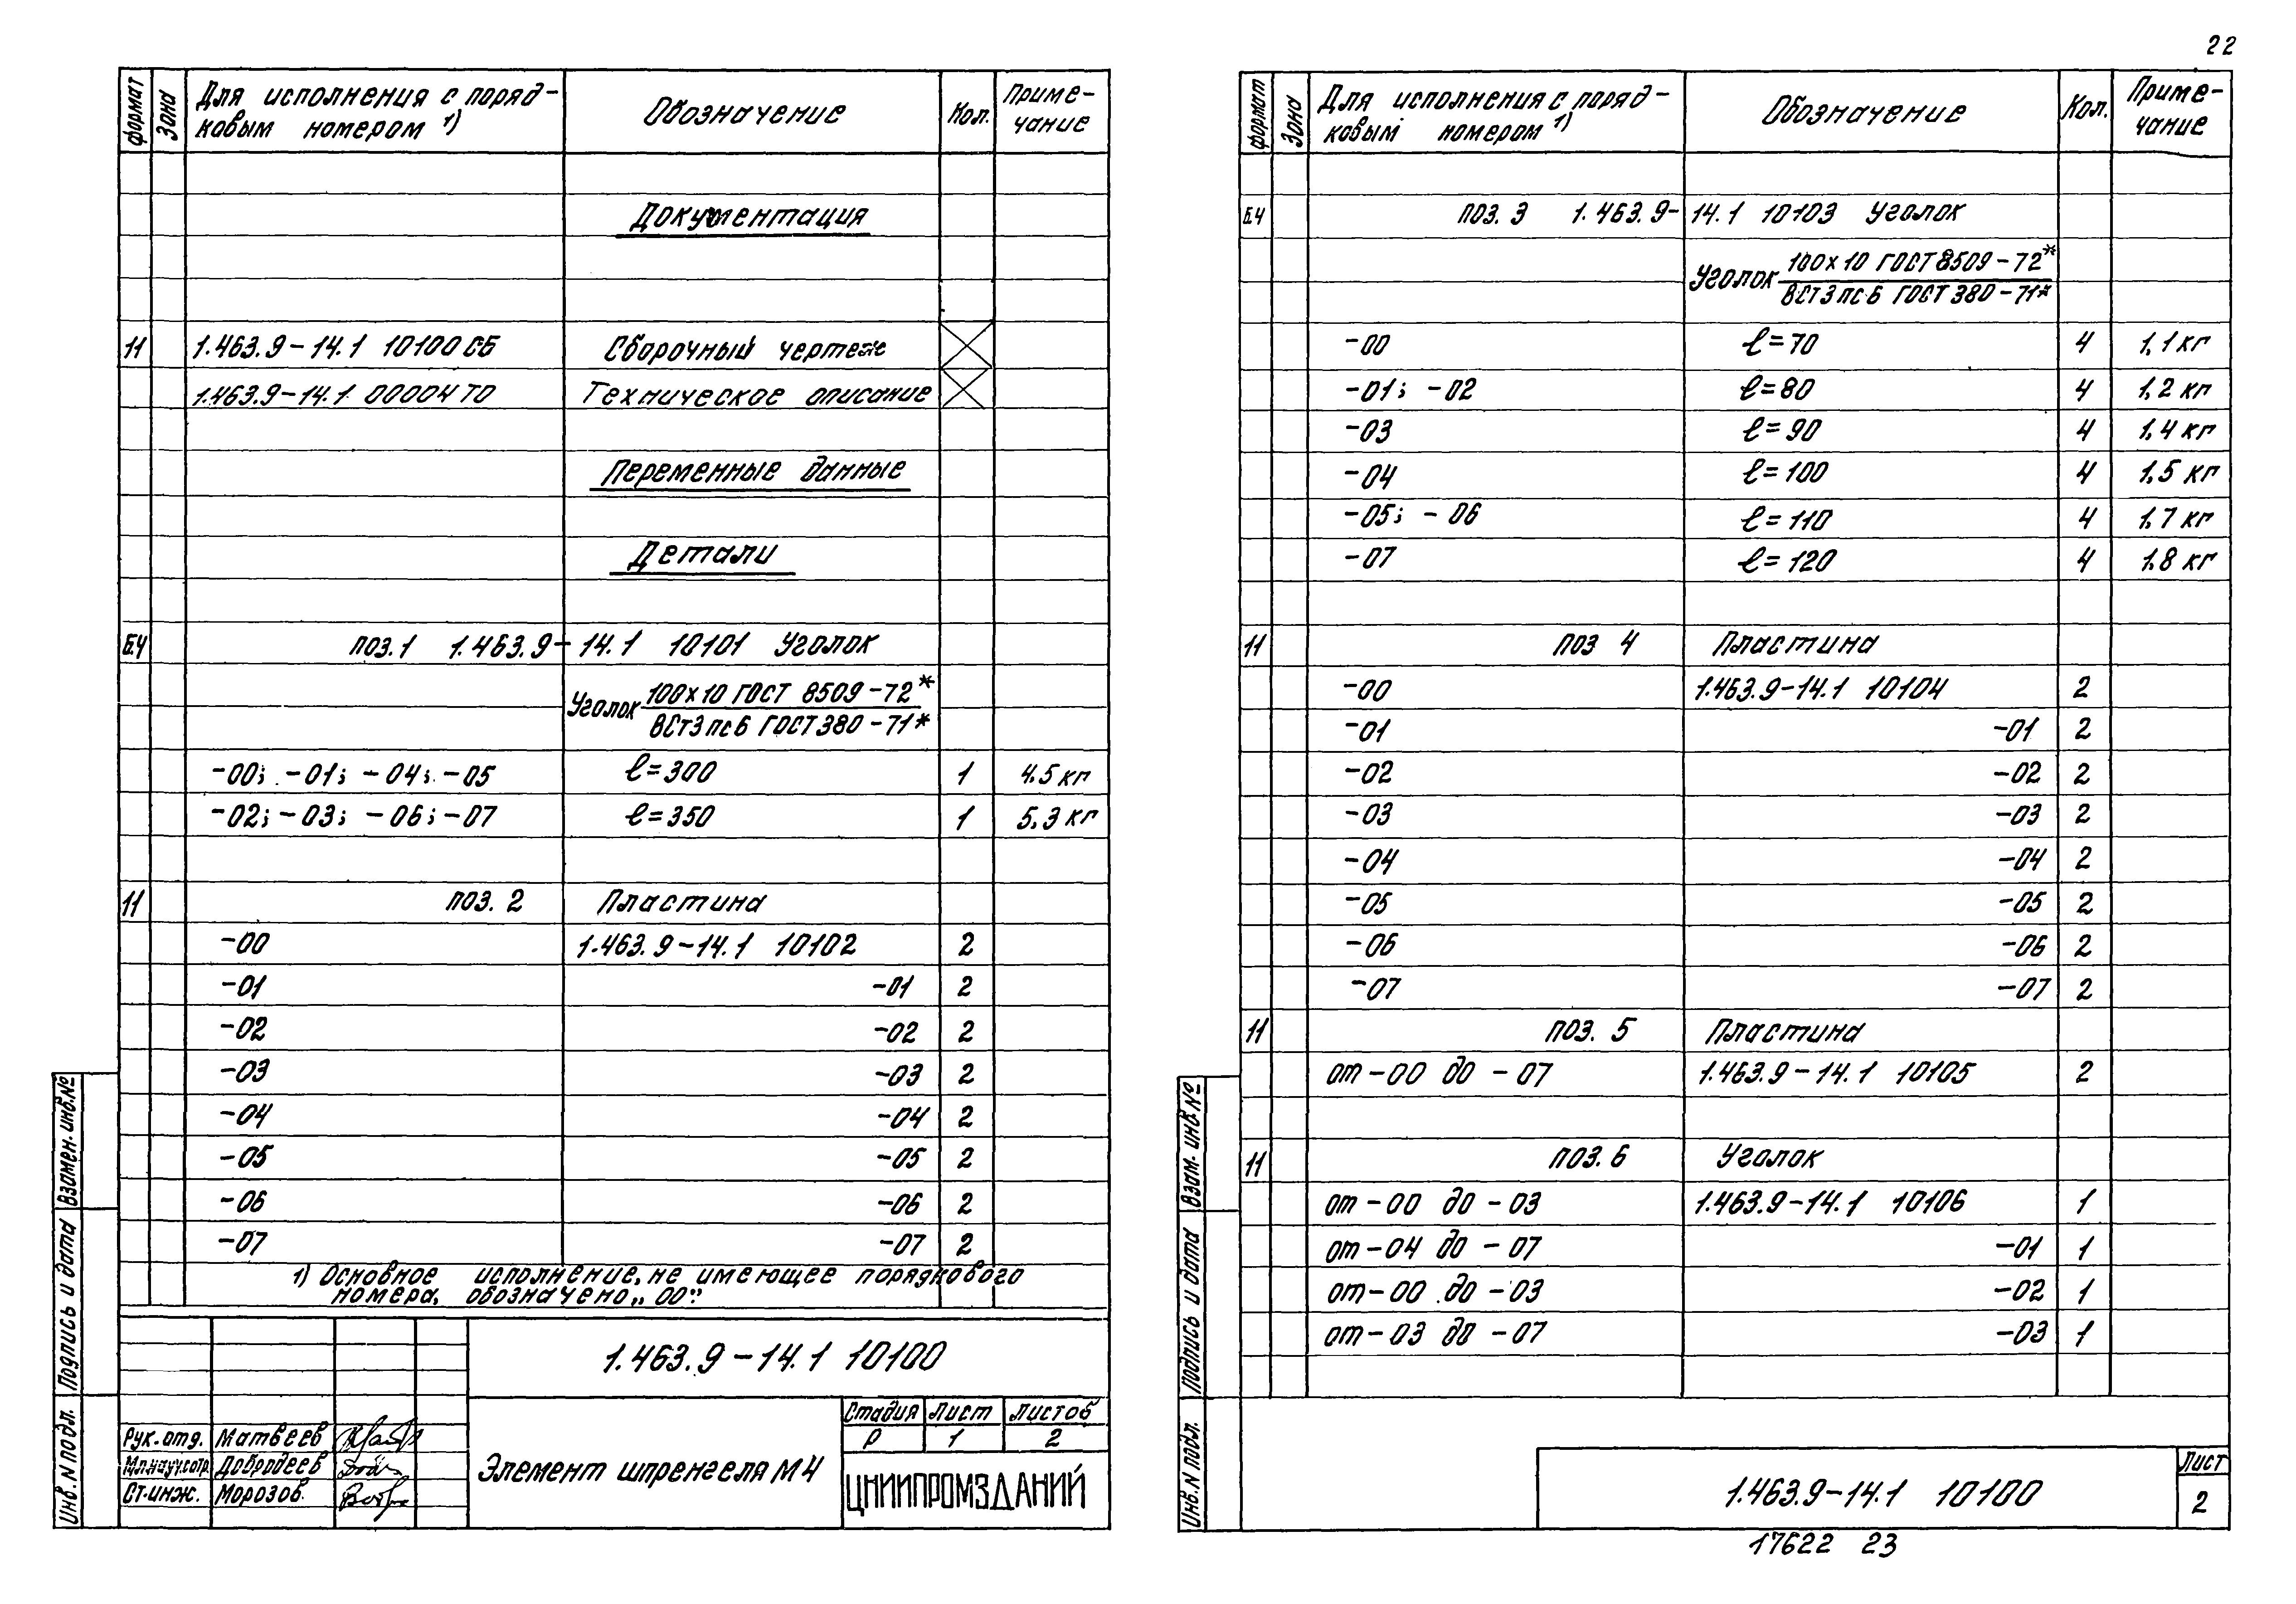 22
формат
Зона
Для исполнения с поряд-
ковым номером 1)
Обозначение
Кол.
Приме-
чание
Документация
11 1.463.9-14.1 10100 СБ Сборочный чертеж
1.463.9-14.1 00004 ТО Техническое описание
Переменные данные
Детали
Б.Ч поз.1 1.463.9-14.1 10101 Уголок
Уголок 100×10 ГОСТ 8509-72*
ВСт3пс6 ГОСТ 380-71*
-00; -01; -04; -05 ℓ=300 1 4.5 кг
-02; -03; -06; -07 ℓ=350 1 5.3 кг
11 поз. 2 Пластина
-00 1.463.9-14.1 10102 2
-01 -01 2
-02 -02 2
-03 -03 2
-04 -04 2
-05 -05 2
-06 -06 2
-07 -07 2
1) Основное исполнение, не имеющее порядкового
номера, обозначено „00".
1.463.9-14.1 10100
Элемент шпренгеля М4
Стадия Лист Листов
Р 1 2
ЦНИИПРОМЗДАНИЙ
Рук.отд. Матвеев
Мл.науч.сотр. Добродеев
Ст.инж. Морозов.
Взамен. инв.№
Подпись и дата
Инв.N подл.
формат
Зона
Для исполнения с поряд-
ковым номером 1)
Обозначение
Кол.
Приме-
чание
Б.Ч поз. 3 1.463.9-14.1 10103 Уголок
Уголок 100×10 ГОСТ 8509-72*
ВСт3пс6 ГОСТ 380-71*
-00 ℓ=70 4 1,1 кг
-01; -02 ℓ=80 4 1,2 кг
-03 ℓ=90 4 1,4 кг
-04 ℓ=100 4 1,5 кг
-05; -06 ℓ=110 4 1,7 кг
-07 ℓ=120 4 1,8 кг
11 поз 4 Пластина
-00 1.463.9-14.1 10104 2
-01 -01 2
-02 -02 2
-03 -03 2
-04 -04 2
-05 -05 2
-06 -06 2
-07 -07 2
11 поз. 5 Пластина
от-00 до -07 1.463.9-14.1 10105 2
11 поз. 6 Уголок
от-00 до -03 1.463.9-14.1 10106 1
от-04 до -07 -01 1
от-00 до -03 -02 1
от-03 до -07 -03 1
Взам. инв №
Подпись и дата
Инв.N подл.
1.463.9-14.1 10100
Лист
2
17622 23